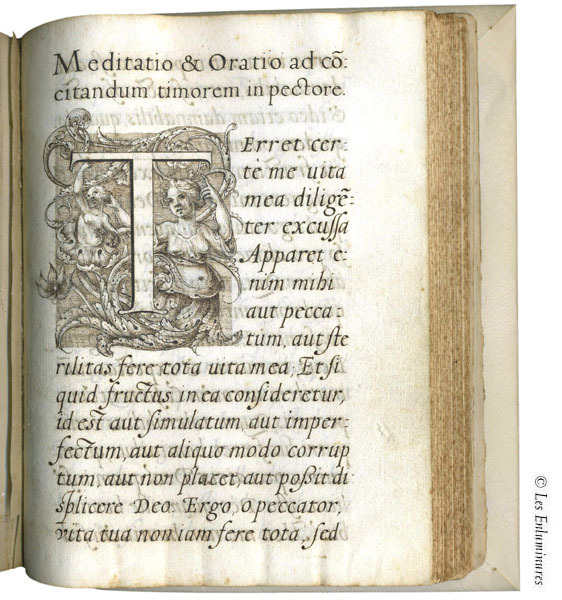 Meditatio & Oratio ad cõ:
citandum timorem in pectore.
TErret cer-
te me uita
mea diligẽ:
ter excussa
Apparet e:
nim mihi
aut pecca:
tum, aut ste
rilitas fere tota uita mea; Et si
quid fructus in ea consideretur,
id est aut simulatum aut imper:
fectum, aut aliquo modo corrup
tum, aut non placet, aut possit di:
splicere Deo. Ergo, o peccator,
vita tua non iam fere tota, sed
© Les Enluminures